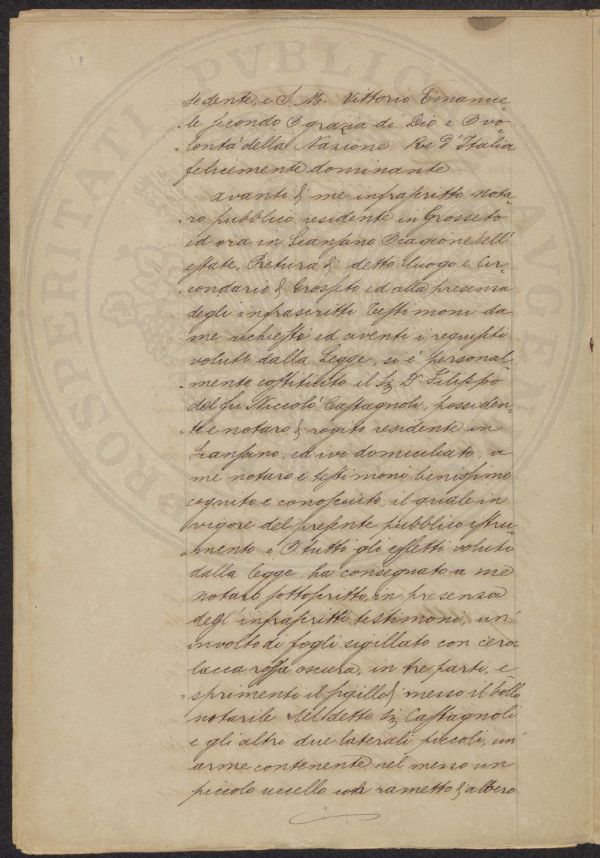 sedente, e S. M. Vittorio Emanue-
le secondo P grazia di Dio e P vo-
lontà della Nazione Re D'Italia
felicemente dominante
avanti di me infrascritto nota-
ro pubblico residente in Grosseto
ed ora in Scansano P cagione dell'
estate, Pretura di detto luogo e Cir-
condario di Grosseto ed alla presenza
degli infrascritti Testimoni da
me richiesti ed aventi i requisiti
voluti dalla Legge, si è personal-
mente costituito il Sig. Dr. Filippo
del fu Niccolò Castagnoli, possiden-
te e notaro di rogito residente in
Scansano, ed ivi domiciliato, a
me notaro e testimoni benissimo
cognito e conosciuto, il quale in
vigore del presente pubblico istru-
mento e P tutti gli effetti voluti
dalla legge, ha consegnato a me
notaro sottoscritto, in presenza
degl'infrascritti testimoni, un'
involto di fogli sigillato con cera
lacca rossa oscura, in tre parti, e
sprimenti il di mezzo il bollo
notarile del detto Sig. Castagnoli
e gli altri due laterali piccoli, un'
arme contenente nel mezzo un
piccolo uccello con rametto di albero
PROSPERITATI PVBLICAE AVGENDAE